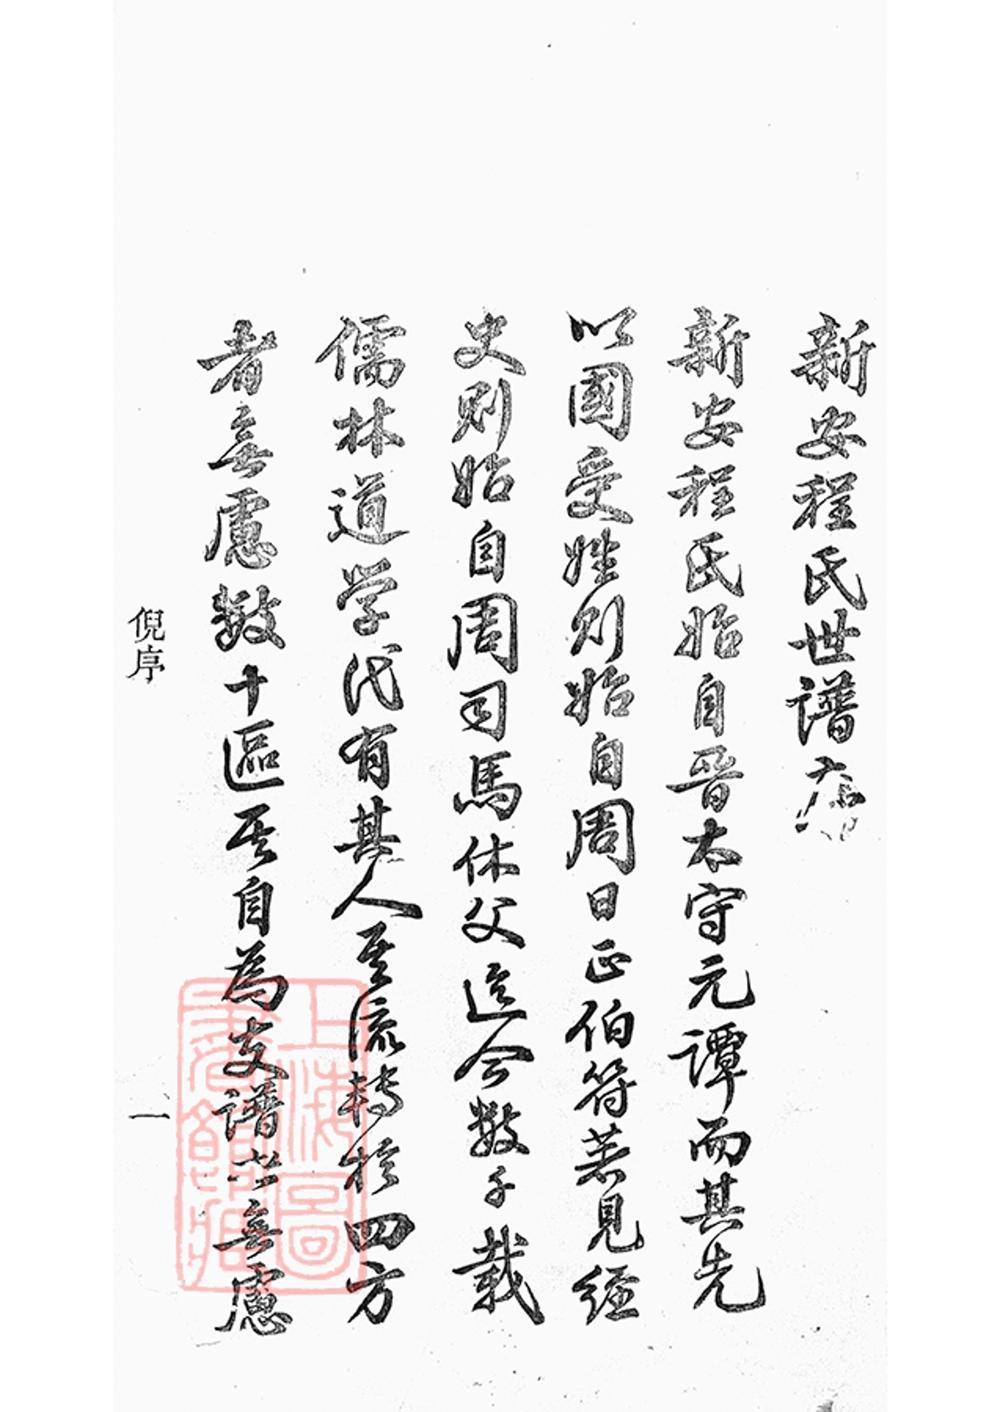 新安程氏世譜序
新安程氏始自晋太守元譚而其先
以國受姓則始自周曰正伯符若見經
史則始自周司馬休父迄今數千載
儒林道学代有其人至流轉於四方
者無慮數十區至自為支譜亦無慮
倪序
一
上海圖
書館藏